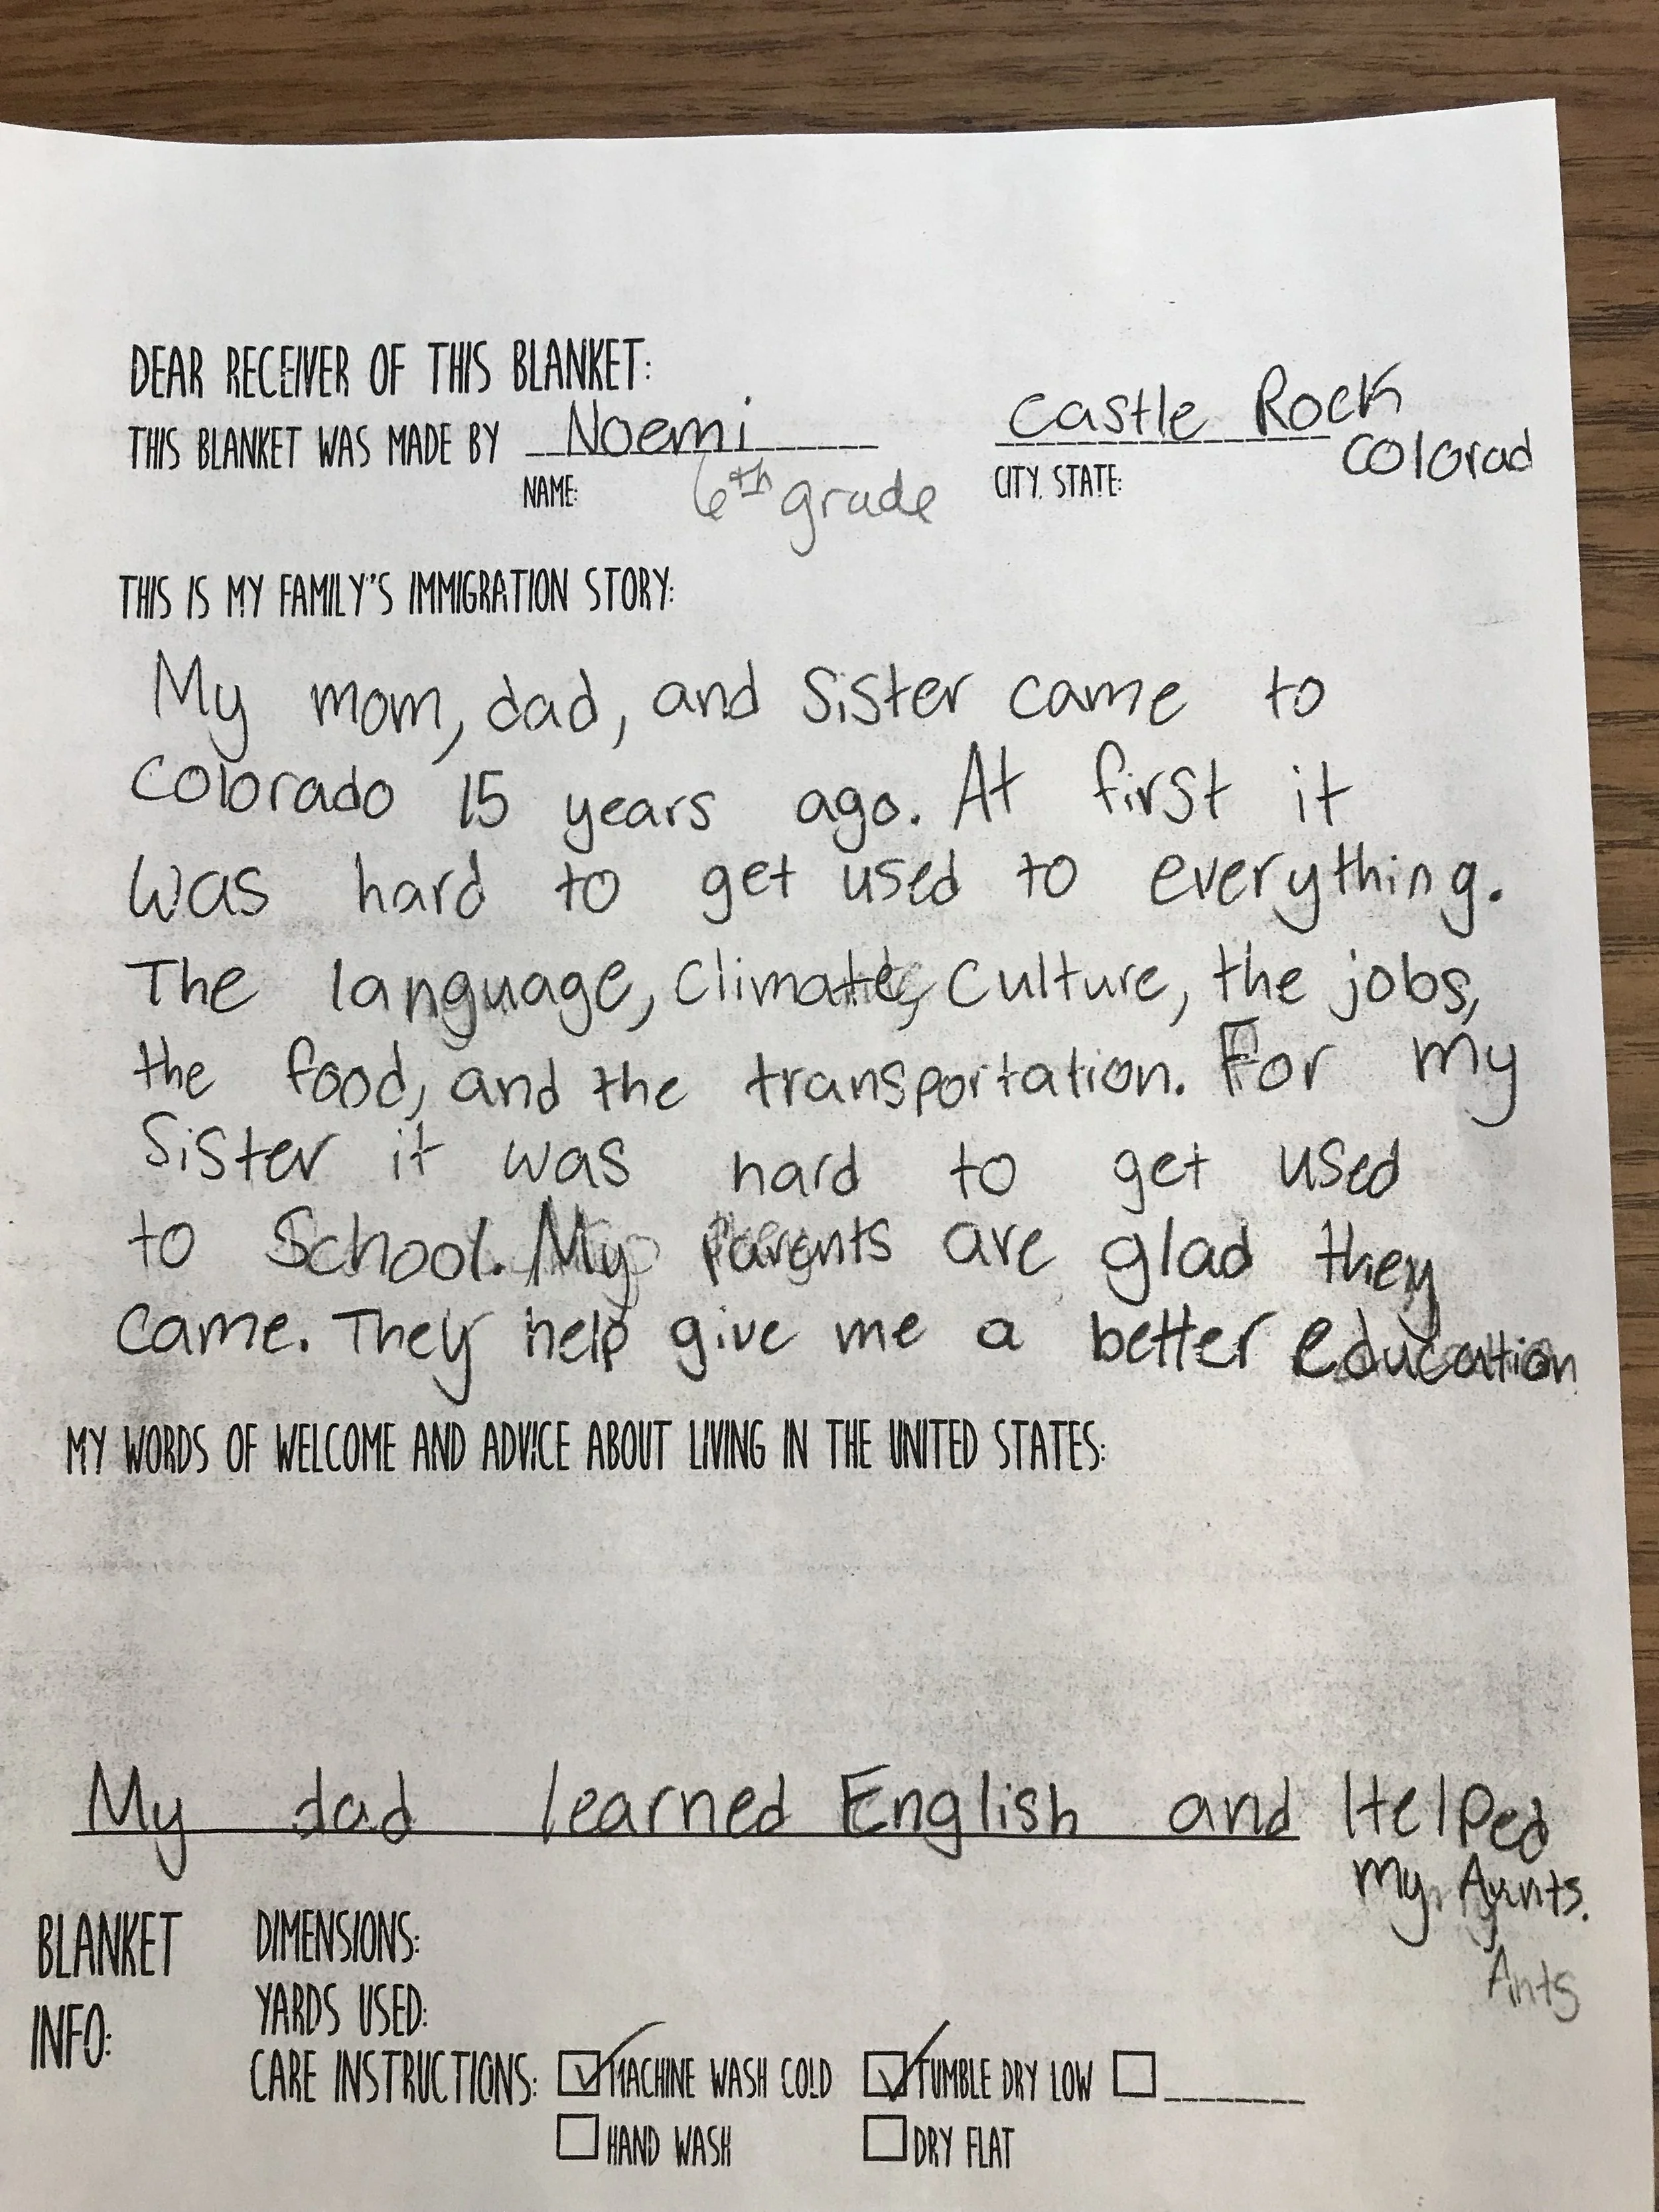 DEAR RECEIVER OF THIS BLANKET:
THIS BLANKET WAS MADE BY Noemi Castle Rock
Colorad
NAME: 6th grade CITY, STATE:
THIS IS MY FAMILY'S IMMIGRATION STORY:
My mom, dad, and Sister came to
Colorado 15 years ago. At first it
was hard to get used to everything.
The language, Climate, Culture, the jobs,
the food, and the transportation. For my
Sister it was hard to get used
to School. My parents are glad they
came. They help give me a better education
MY WORDS OF WELCOME AND ADVICE ABOUT LIVING IN THE UNITED STATES:
My dad learned English and Helped
my Aunts.
Ants
BLANKET INFO:
DIMENSIONS:
YARDS USED:
CARE INSTRUCTIONS: MACHINE WASH COLD TUMBLE DRY LOW
HAND WASH DRY FLAT